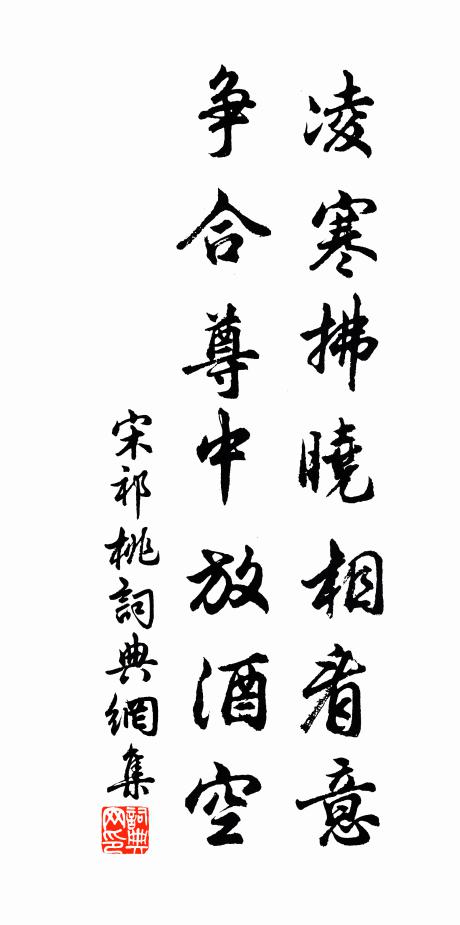 凌寒拂曉相看意
争合尊中放酒空
宋祁桃詞典網集
詞典網印